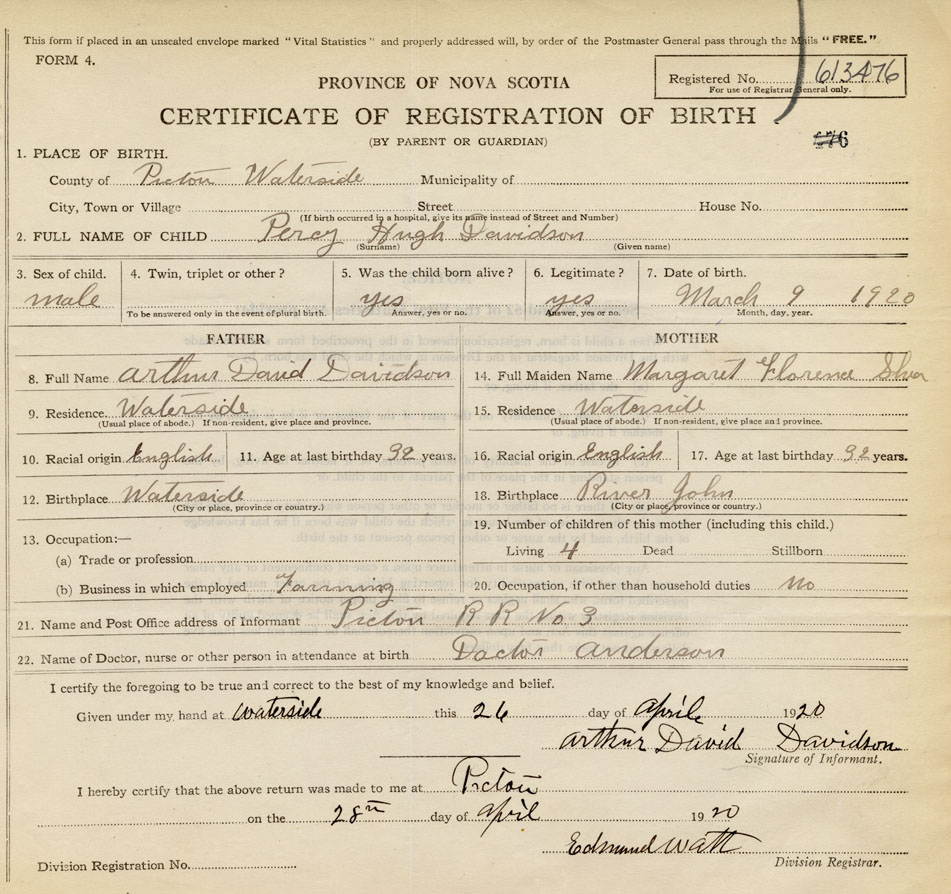 This form if placed in an unsealed envelope marked "Vital Statistics" and properly addressed will, by order of the Postmaster General pass through the Mails "FREE."
FORM 4.
Registered No. 613476
For use of Registrar General only.
PROVINCE OF NOVA SCOTIA
CERTIFICATE OF REGISTRATION OF BIRTH
(BY PARENT OR GUARDIAN)
1. PLACE OF BIRTH.
County of Picton Waterside Municipality of
City, Town or Village Street House No.
(If birth occurred in a hospital, give its name instead of Street and Number)
2. FULL NAME OF CHILD Percy Hugh Davidson
(Surname) (Given name)
3. Sex of child. 4. Twin, triplet or other? 5. Was the child born alive? 6. Legitimate? 7. Date of birth.
male yes yes March 9 1920
To be answered only in the event of plural birth. Answer, yes or no. Answer, yes or no. Month, day, year.
FATHER MOTHER
8. Full Name Arthur David Davidson 14. Full Maiden Name Margaret Florence
9. Residence. Waterside 15. Residence Waterside
(Usual place of abode.) If non-resident, give place and province. (Usual place of abode.) If non-resident, give place and province.
10. Racial origin English 11. Age at last birthday 32 years. 16. Racial origin English 17. Age at last birthday 32 years.
12. Birthplace Waterside 18. Birthplace River John
(City or place, province or country.) (City or place, province or country.)
13. Occupation:— 19. Number of children of this mother (including this child.)
(a) Trade or profession Living 4 Dead Stillborn
(b) Business in which employed Farming 20. Occupation, if other than household duties no
21. Name and Post Office address of Informant Picton R R No 3
22. Name of Doctor, nurse or other person in attendance at birth Doctor Anderson
I certify the foregoing to be true and correct to the best of my knowledge and belief.
Given under my hand at Waterside this 26 day of Aprile 1920
Arthur David Davidson
Signature of Informant.
I hereby certify that the above return was made to me at Picton
on the 28th day of April 1920
Edmund Watt
Division Registration No. Division Registrar.